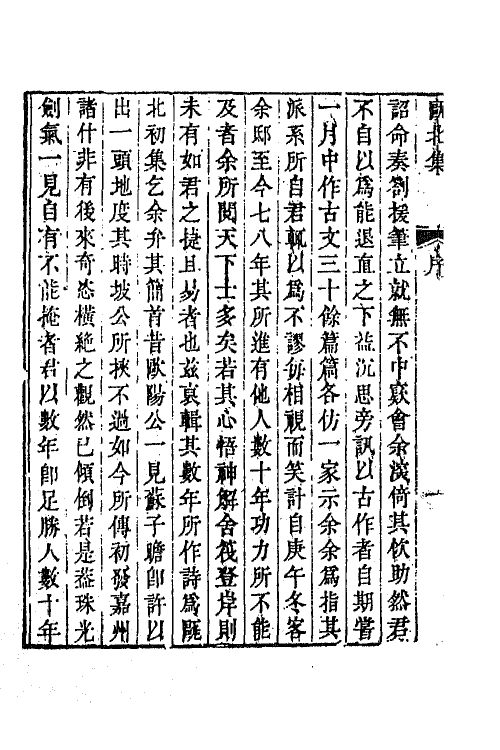 甌北集　序　一
詔命奏劄援筆立就無不中窽會余深倚其佽助然君
不自以爲能退直之下益沉思旁訊以古作者自期嘗
一月中作古文三十餘篇篇各仿一家示余余爲指其
派系所自君輒以爲不謬每相視而笑計自庚午冬客
余邸至今七八年其所進有他人數十年功力所不能
及者余所閱天下士多矣若其心悟神解舍筏登岸則
未有如君之捷且易者也兹裒輯其數年所作詩爲甌
北初集乞余弁其簡首昔歐陽公一見蘇子瞻卽許以
出一頭地度其時坡公所挾不過如今所傳初發嘉州
諸什非有後來奇恣橫絶之觀然已傾倒若是葢珠光
劍氣一見自有不能掩者君以數年卽足勝人數十年